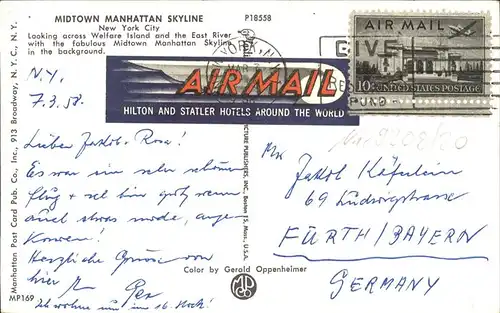 MIDTOWN MANHATTAN SKYLINE P18558
New York City
Looking across Welfare Island and the East River
with the fabulous Midtown Manhattan Skyline
in the background.
N.Y.
7.3.58.
Lieber Jakob + Rosa!
Es war ein sehr schöner
Flug + bin gut, wenn
auch etwas müde, ange-
kommen!
Herzliche Grüsse von
hier
Ich wohne im 16. Stock!
AIR MAIL
HILTON AND STATLER HOTELS AROUND THE WORLD
YORK, N.Y.
MAR
GIVE
FUND
AIR MAIL
10¢ UNITED STATES POSTAGE
Jakob
69 Ludwigstrasse
FÜRTH/BAYERN
GERMANY
Color by Gerald Oppenheimer
Manhattan Post Card Pub. Co., Inc., 913 Broadway, N.Y.C., N.Y.
MP169
PICTURE PUBLISHERS, INC., Boston 15, Mass., U.S.A.